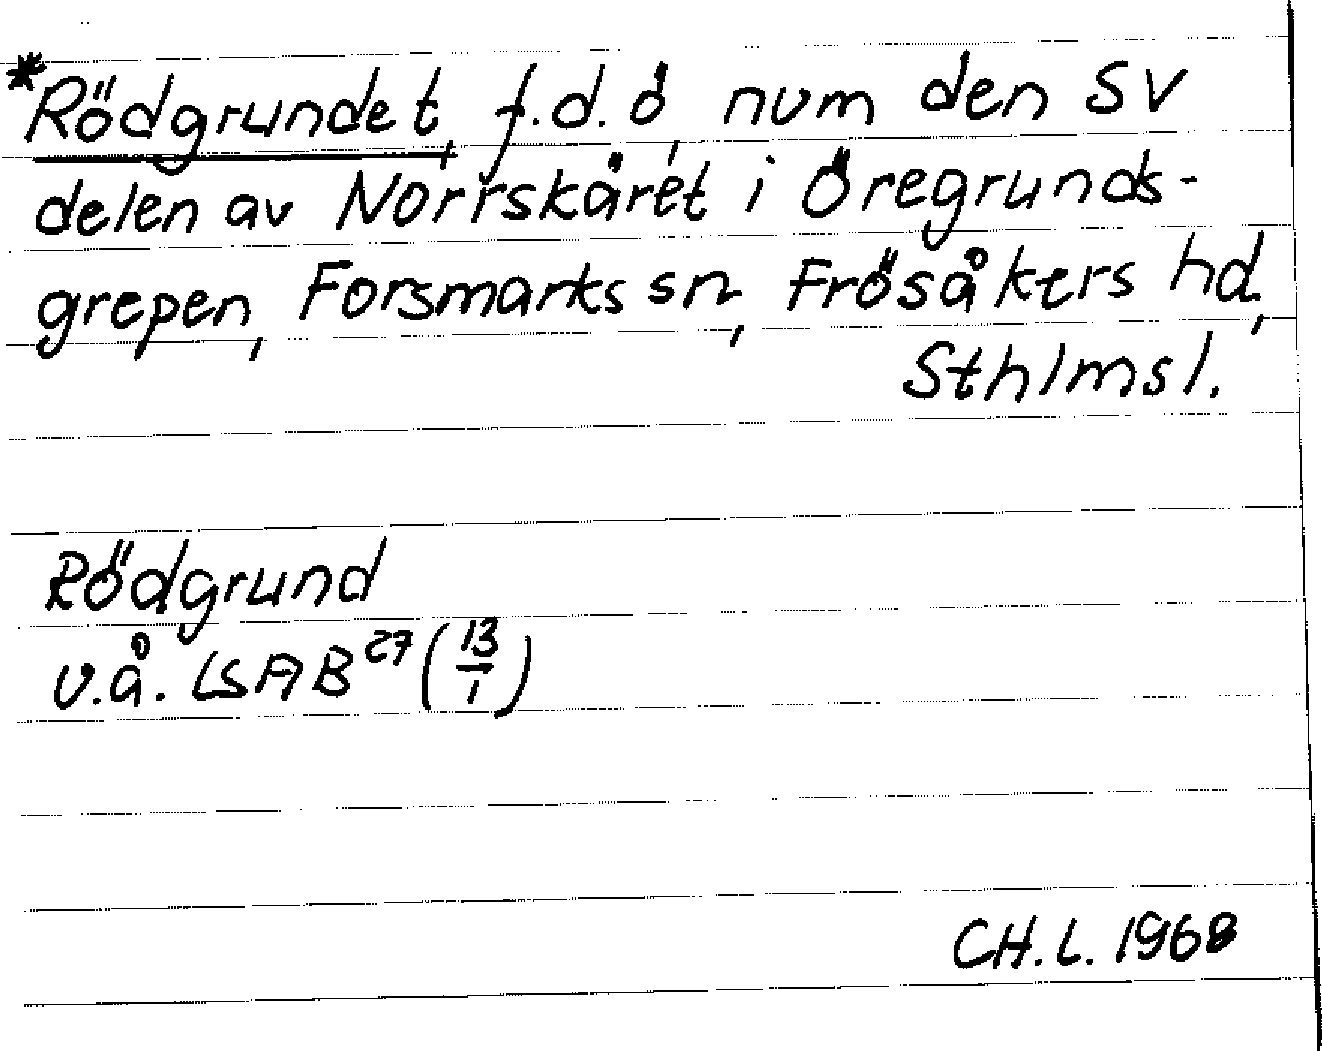 *Rödgrundet, f.d. ö, num den SV
delen av Norrskäret i Öregrunds-
grepen, Forsmarks sn, Frösåkers hd,
Sthlmsl.
Rödgrund
v.å. LSA B27 (13/1)
CH.L. 1968